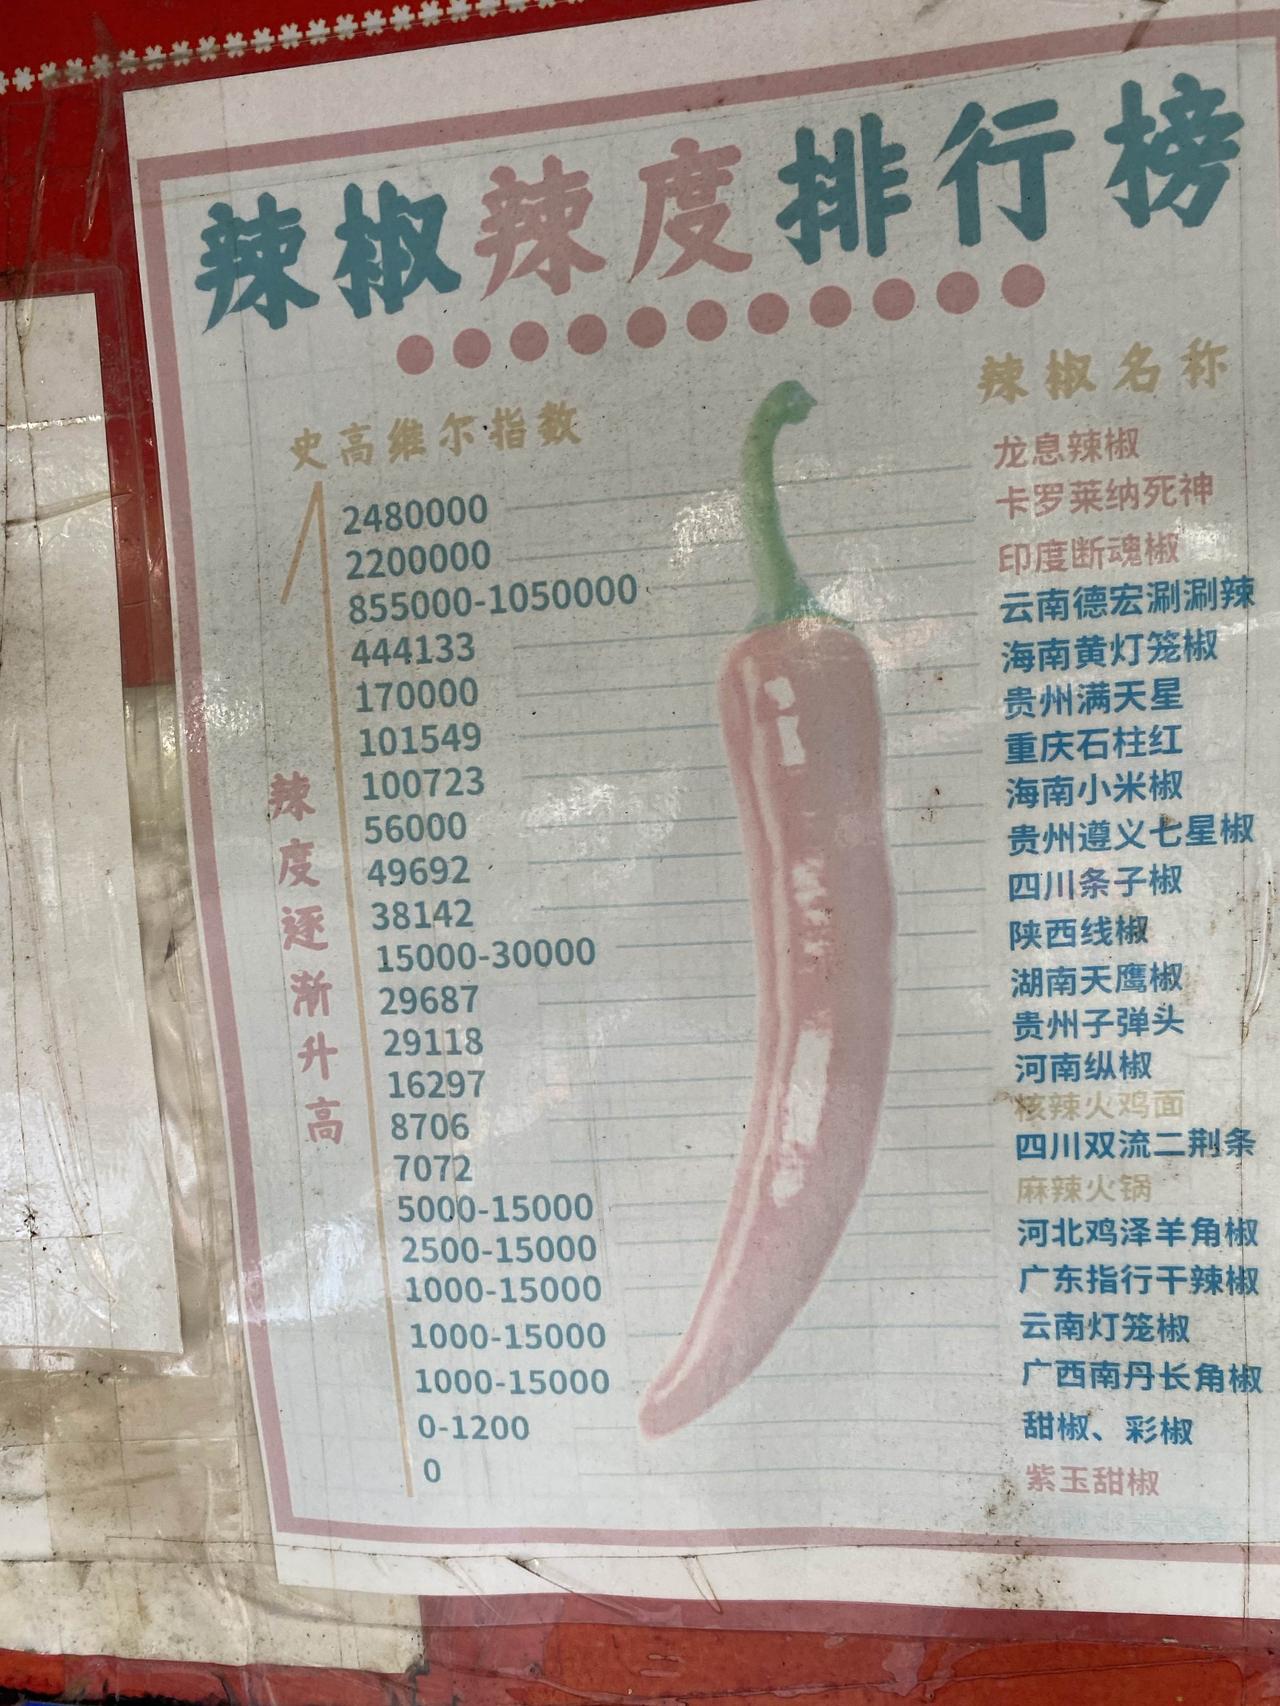 辣椒辣度排行榜
史高维尔指数 辣椒名称
2480000 龙息辣椒
2200000 卡罗莱纳死神
855000-1050000 印度断魂椒
444133 云南德宏涮涮辣
170000 海南黄灯笼椒
101549 贵州满天星
100723 重庆石柱红
56000 海南小米椒
49692 贵州遵义七星椒
38142 四川条子椒
15000-30000 陕西线椒
29687 湖南天鹰椒
29118 贵州子弹头
16297 河南纵椒
8706 核辣火鸡面
7072 四川双流二荆条
5000-15000 麻辣火锅
2500-15000 河北鸡泽羊角椒
1000-15000 广东指行干辣椒
1000-15000 云南灯笼椒
1000-15000 广西南丹长角椒
0-1200 甜椒、彩椒
0 紫玉甜椒
辣度逐渐升高